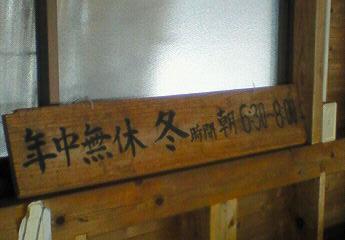 年中無休 冬時間 朝6:30-8:00